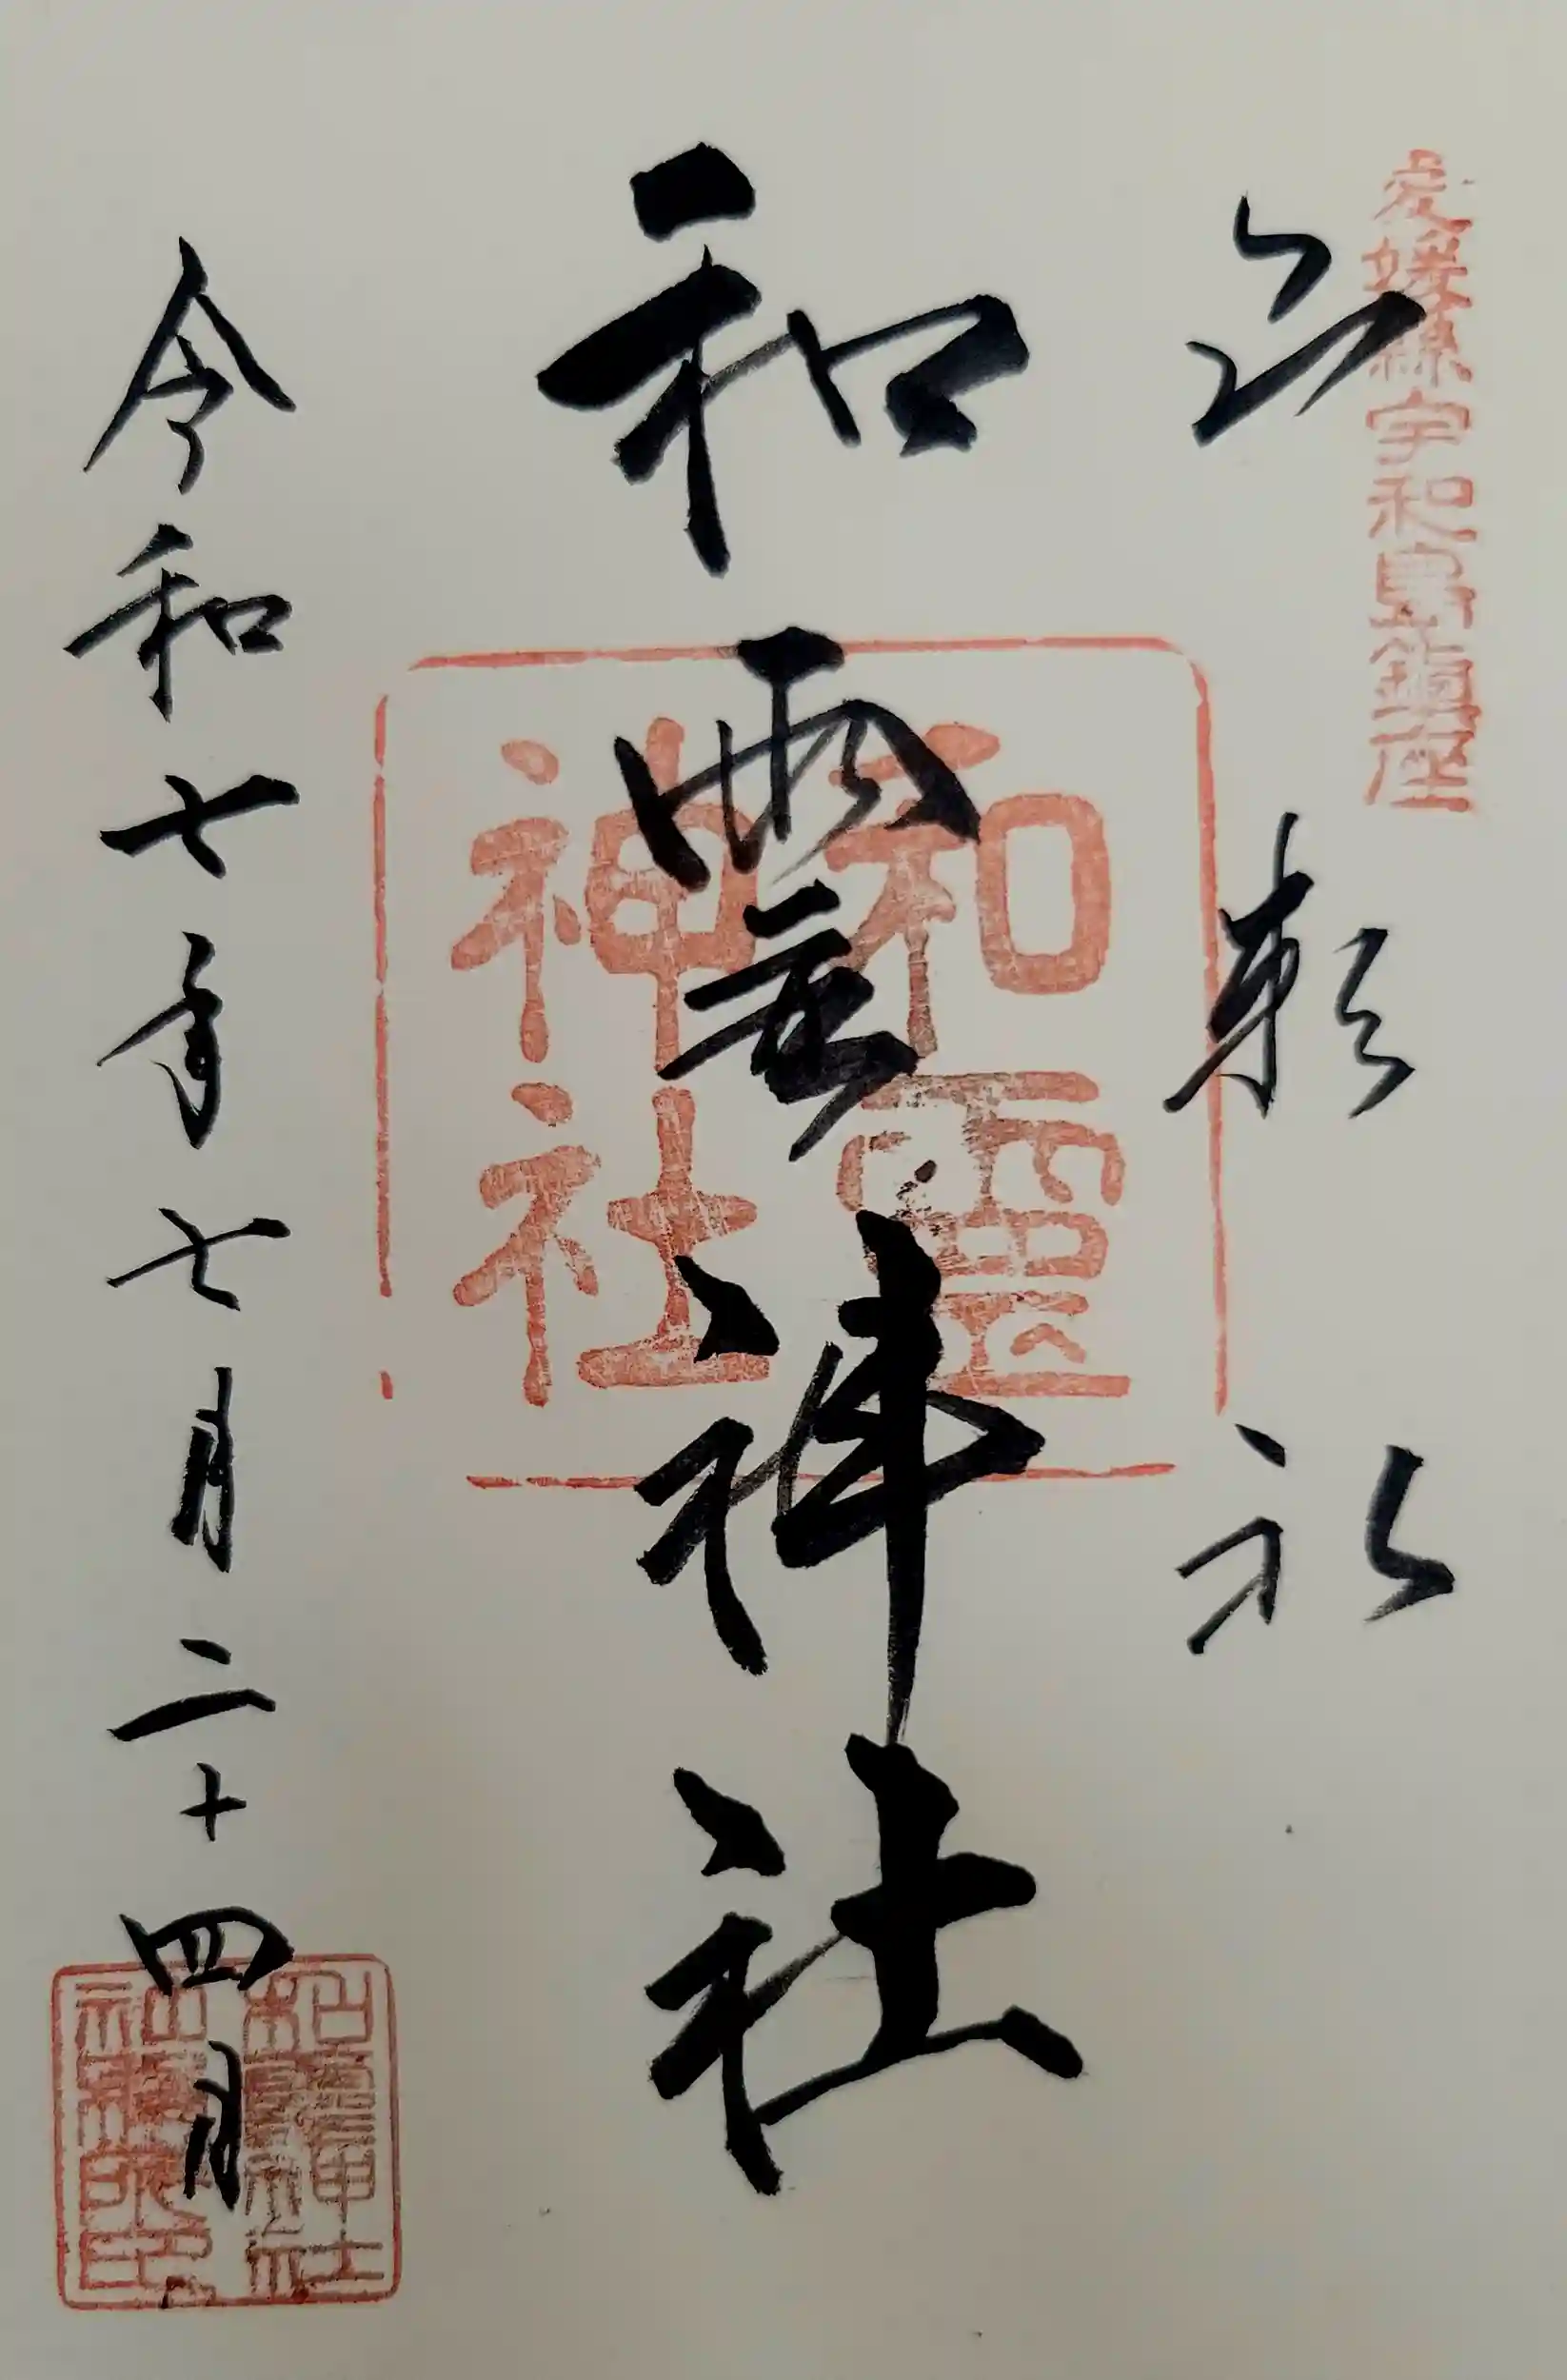 愛媛縣宇和島鎮座
頼
和霊神社
和靈神社
令和七年七月二十四日